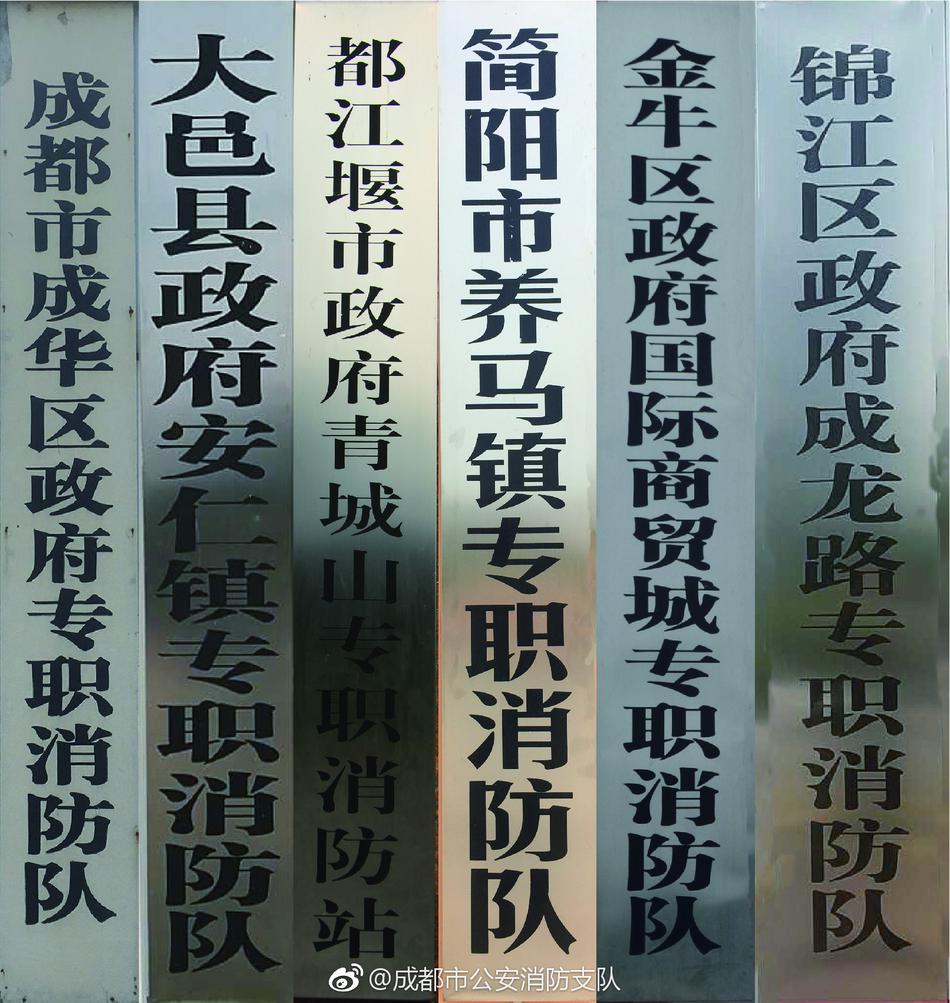 成都市成华区政府专职消防队
大邑县政府安仁镇专职消防队
都江堰市政府青城山专职消防站
简阳市养马镇专职消防队
金牛区政府国际商贸城专职消防队
锦江区政府成龙路专职消防队
@成都市公安消防支队